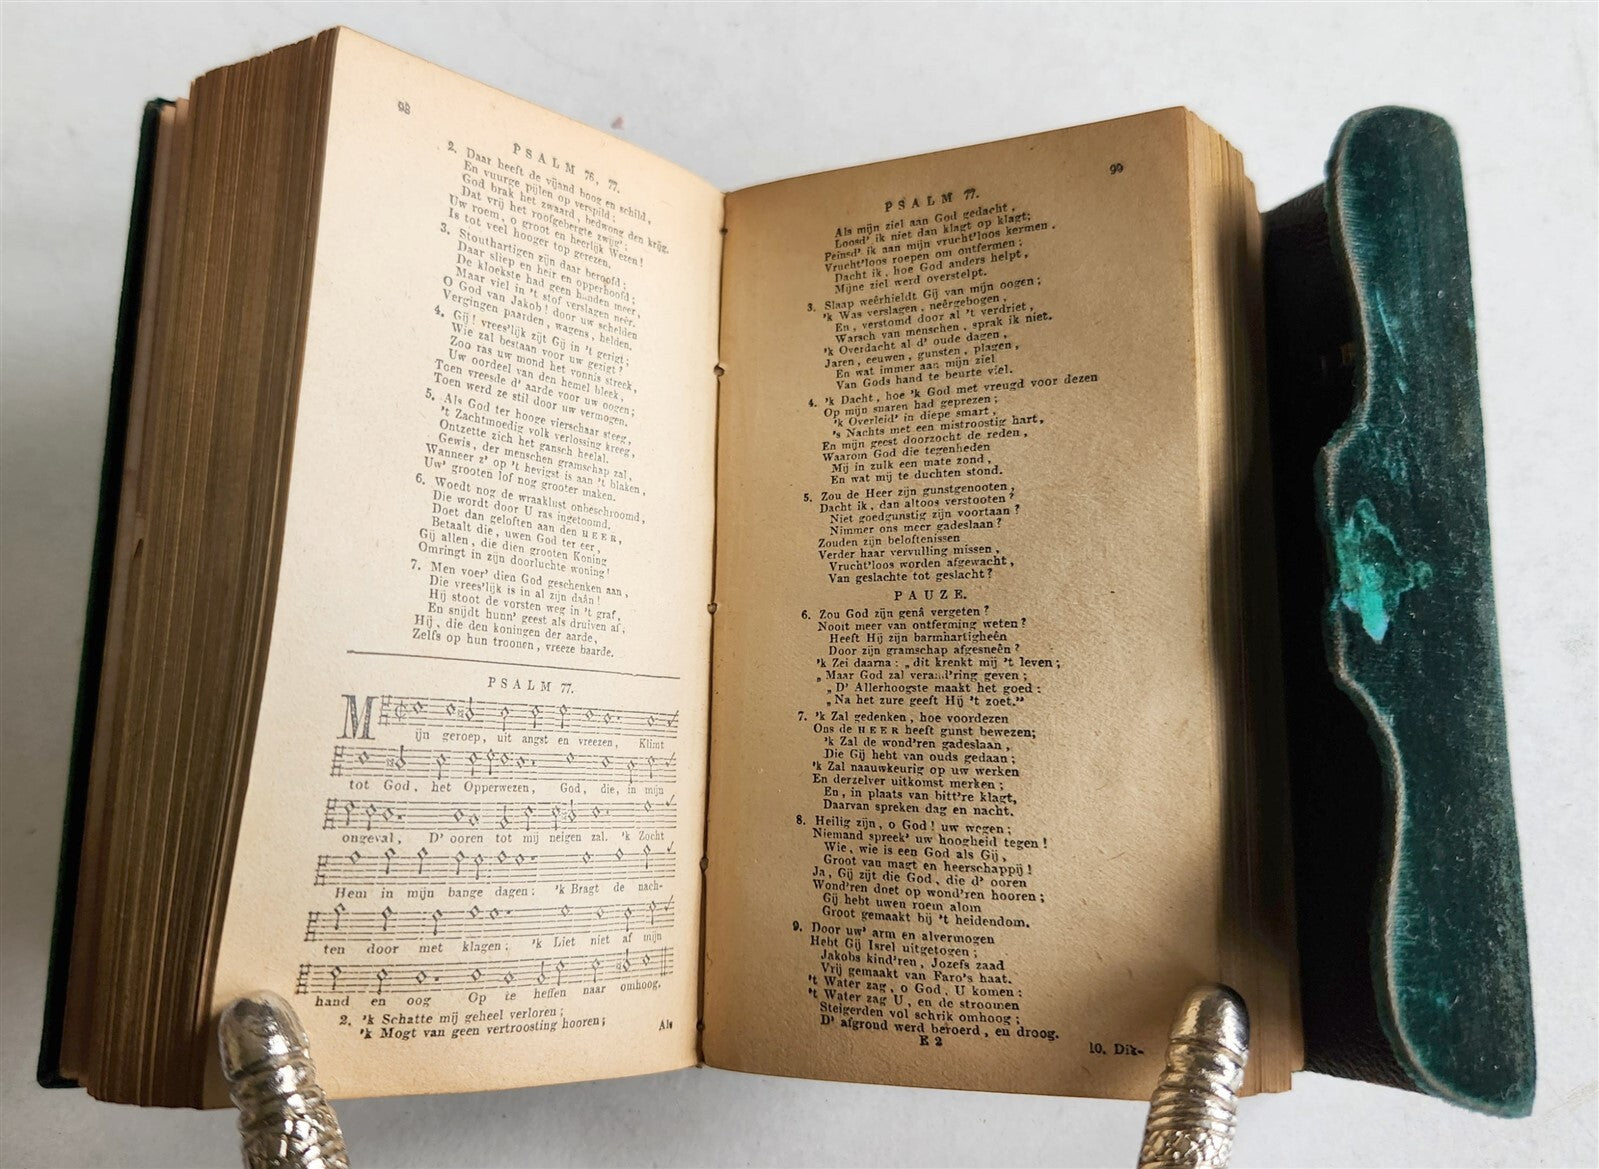 98
PSALM 76, 77.
2. Daar heeft de vijand boog en schild,
En vuurge pijlen op verspild;
God brak het zwaard, bedwong den krijg.
Dat vrij het roofgebergte zwijg';
Uw roem, o groot en heerlijk Wezen!
Is tot veel hooger top gerezen.
3. Stouthartigen zijn daar beroofd;
Daar sliep en heir en opperhoofd;
De kloekste had geen handen meer,
Maar viel in 't stof verslagen neêr.
O God van Jakob! door uw schelden
Vergingen paarden, wagens, helden.
4. Gij! vrees'lijk zijt Gij in 't gerigt;
Wie zal bestaan voor uw gezigt?
Zoo ras uw mond het vonnis streek,
Uw oordeel van den hemel bleek,
Toen vreesde d' aarde voor uw oogen;
Toen werd ze stil door uw vermogen.
5. Als God ter hooge vierschaar steeg,
't Zachtmoedig volk verlossing kreeg,
Ontzette zich het gansch heelal.
Gewis, der menschen gramschap zal,
Wanneer z' op 't hevigst is aan 't blaken,
Uw' grooten lof nog grooter maken.
6. Woedt nog de wraaklust onbeschroomd,
Die wordt door U ras ingetoomd.
Doet dan geloften aan den HEER,
Betaalt die, uwen God ter eer,
Gij allen, die dien grooten Koning
Omringt in zijn doorluchte woning!
7. Men voer' dien God geschenken aan,
Die vrees'lijk is in al zijn daân!
Hij stoot de vorsten weg in 't graf,
En snijdt hunn' geest als druiven af,
Hij, die den koningen der aarde,
Zelfs op hun troonen, vreeze baarde.
PSALM 77.
Mijn geroep, uit angst en vreezen, Klimt
tot God, het Opperwezen, God, die, in mijn
ongeval, D' ooren tot mij neigen zal. 'k Zocht
Hem in mijn bange dagen; 'k Bragt de nach-
ten door met klagen; 'k Liet niet af mijn
hand en oog Op te heffen naar omhoog.
2. 'k Schatte mij geheel verloren;
'k Mogt van geen vertroosting hooren;
Als
99
PSALM 77.
Als mijn ziel aan God gedacht,
Loosd' ik niet dan klagt op klagt;
Peinsd' ik aan mijn vrucht'loos kermen,
Vrucht'loos roepen om ontfermen;
Dacht ik, hoe God anders helpt,
Mijne ziel werd overstelpt.
3. Slaap weêrhieldt Gij van mijn oogen;
'k Was verslagen, neêrgebogen,
En, verstomd door al 't verdriet,
Warsch van menschen, sprak ik niet.
'k Overdacht al d' oude dagen,
Jaren, eeuwen, gunsten, plagen,
En wat immer aan mijn ziel
Van Gods hand te beurte viel.
4. 'k Dacht, hoe 'k God met vreugd voor dezen
Op mijn snaren had geprezen;
'k Overleid' in diepe smart,
's Nachts met een mistroostig hart,
En mijn geest doorzocht de reden,
Waarom God die tegenheden
Mij in zulk een mate zond,
En wat mij te duchten stond.
5. Zou de Heer zijn gunstgenooten,
Dacht ik, dan altoos verstooten?
Niet goedgunstig zijn voortaan?
Nimmer ons meer gadeslaan?
Zouden zijn beloftenissen
Verder haar vervulling missen,
Vrucht'loos worden afgewacht,
Van geslachte tot geslacht?
PAUZE.
6. Zou God zijn genâ vergeten?
Nooit meer van ontferming weten?
Heeft Hij zijn barmhartigheên
Door zijn gramschap afgesneên?
'k Zei daarna: „dit krenkt mij 't leven;
„Maar God zal verand'ring geven;
„D' Allerhoogste maakt het goed:
„Na het zure geeft Hij 't zoet."
7. 'k Zal gedenken, hoe voordezen
Ons de HEER heeft gunst bewezen;
'k Zal de wond'ren gadeslaan,
Die Gij hebt van ouds gedaan;
'k Zal naauwkeurig op uw werken
En derzelver uitkomst merken;
En, in plaats van bitt're klagt,
Daarvan spreken dag en nacht.
8. Heilig zijn, o God! uw wegen;
Niemand spreek' uw hoogheid tegen!
Wie, wie is een God als Gij,
Groot van magt en heerschappij!
Ja, Gij zijt die God, die d' ooren
Wond'ren doet op wond'ren hooren;
Gij hebt uwen roem alom
Groot gemaakt bij 't heidendom.
9. Door uw' arm en alvermogen
Hebt Gij Isrel uitgetogen;
Jakobs kind'ren, Jozefs zaad
Vrij gemaakt van Faro's haat.
't Water zag, o God, U komen;
't Water zag U, en de stroomen
Steigerden vol schrik omhoog;
D' afgroud werd beroerd, en droog.
E 2
10. Dik-